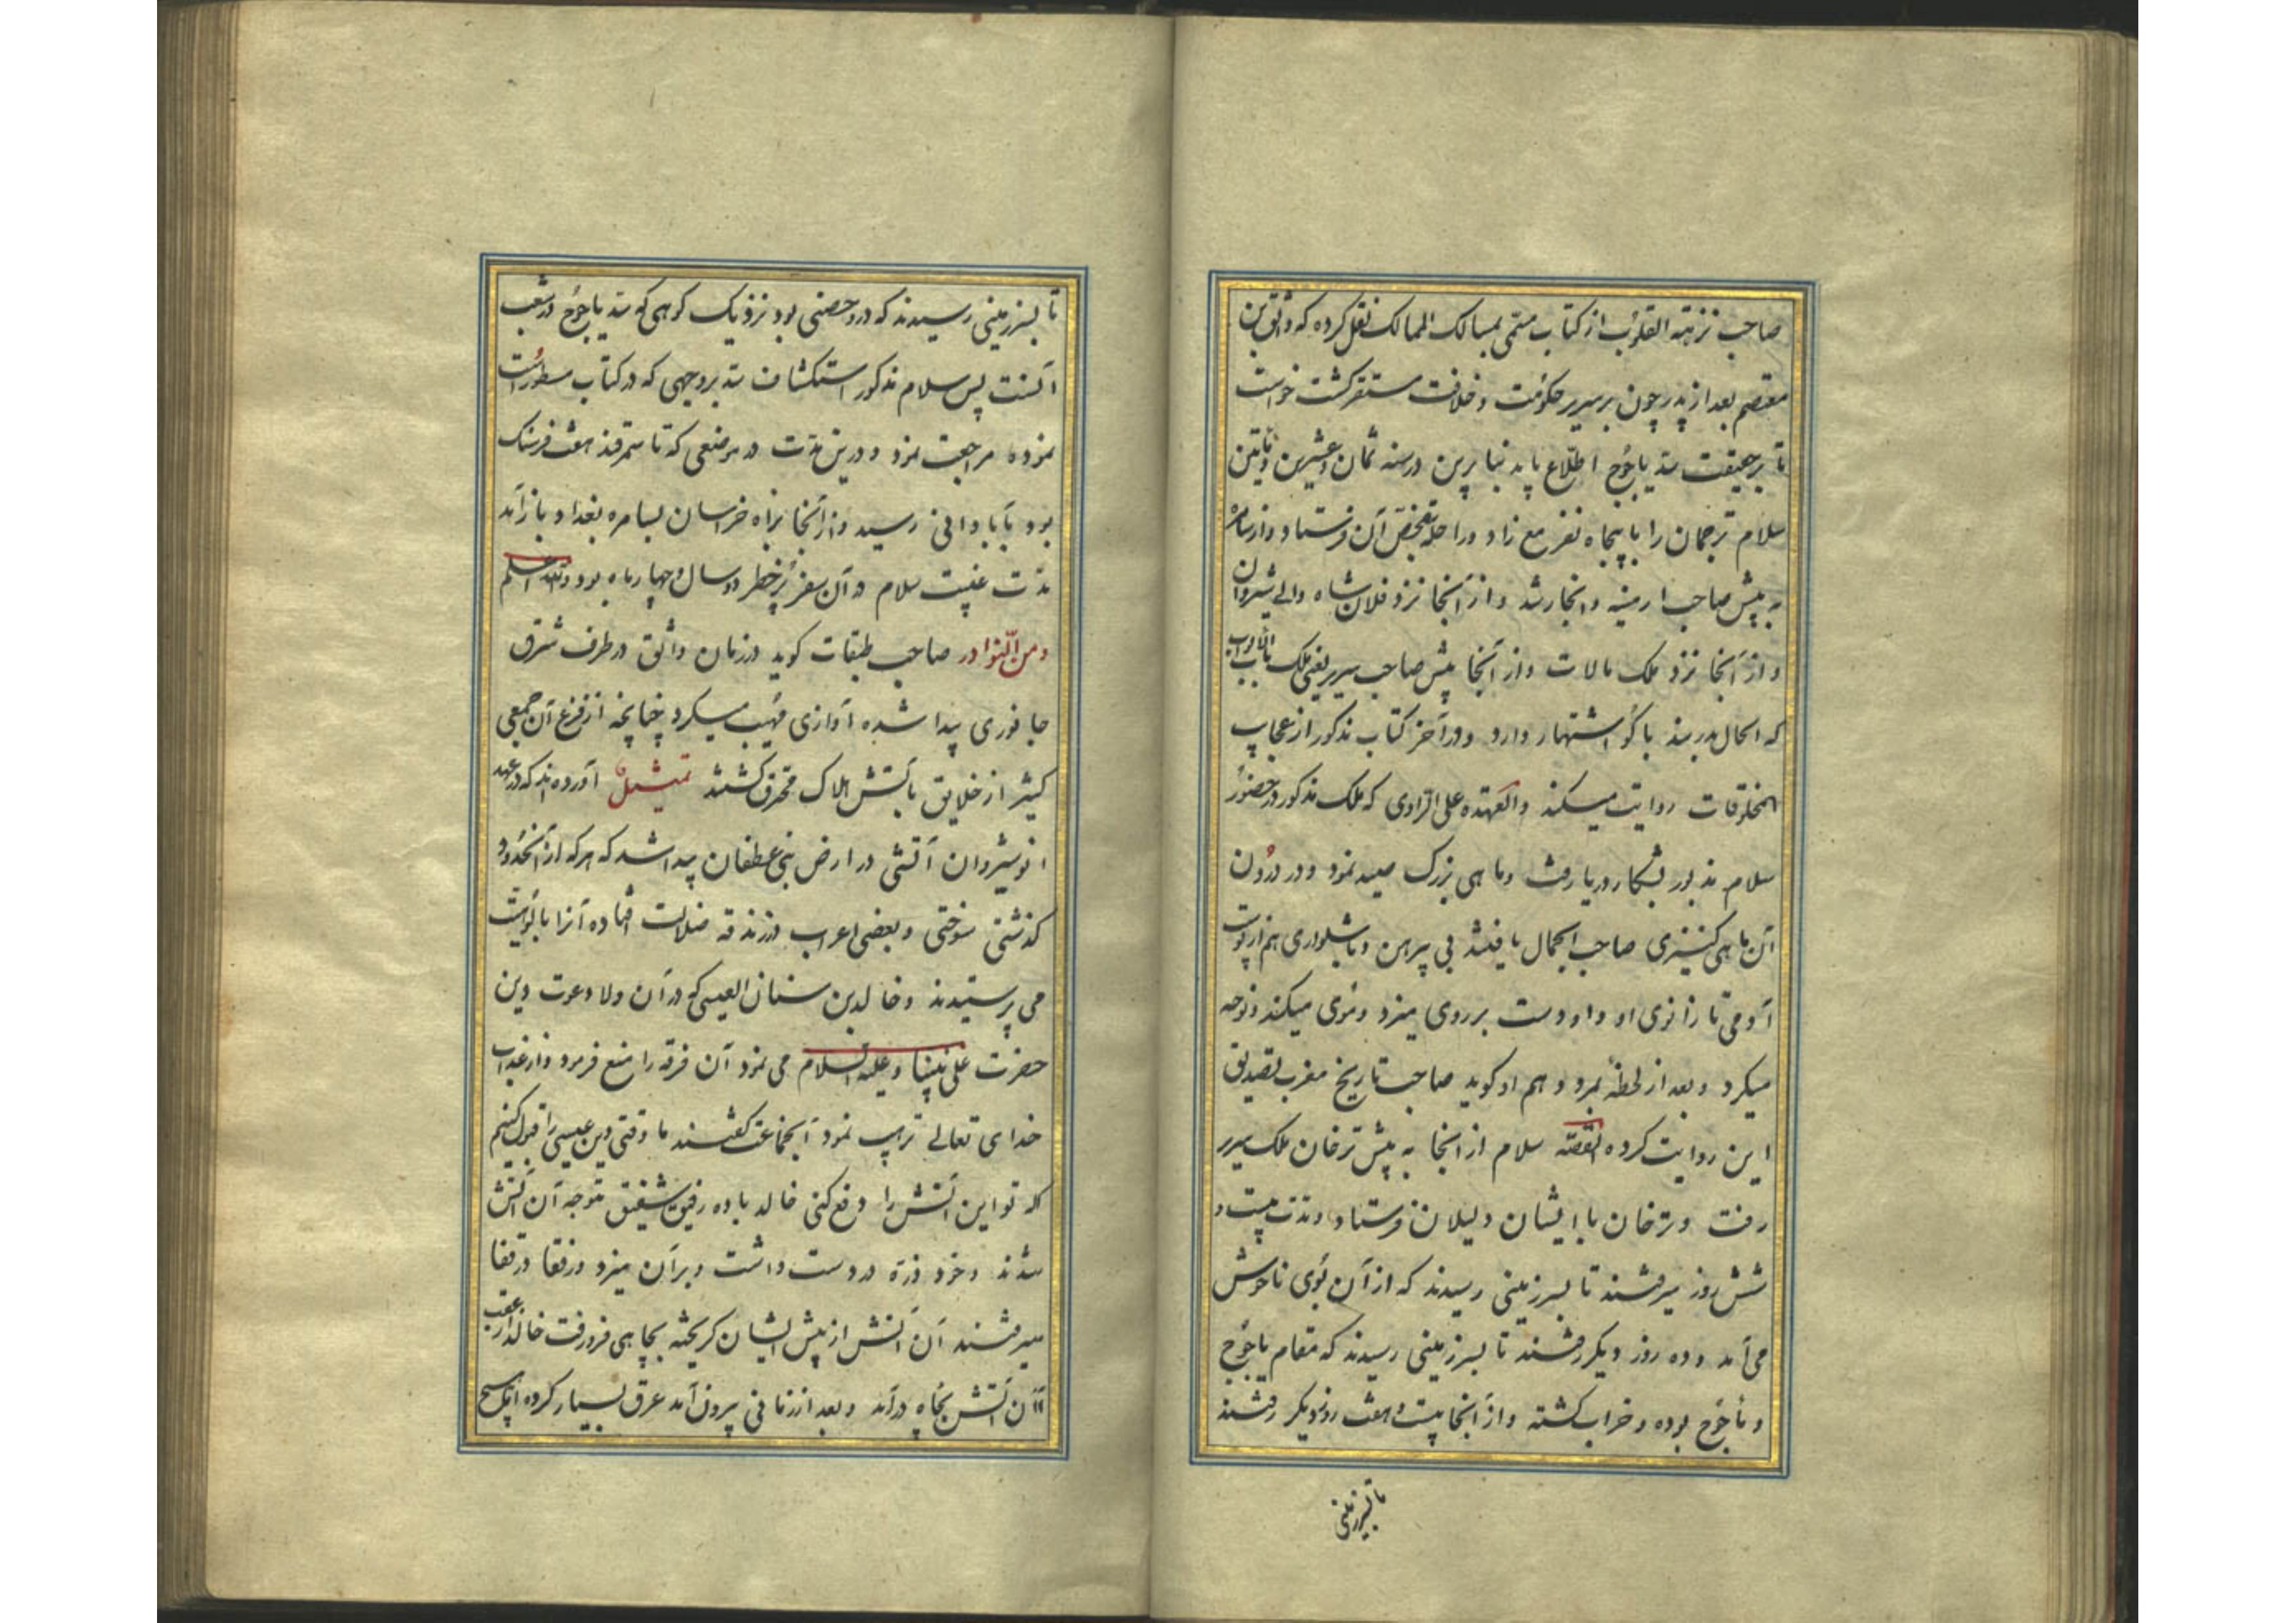 صاحب نزهته القلوب از کتاب مسمی بمسالک الممالک نقل کرده که واثق بن
معتصم بعد از پدر چون بر سریر حکومت و خلافت مستقر کشت خواست
تا بر حقیقت سد یاجوج اطلاع یابد بنا برین در سنه ثمان و عشرین و مأتین
سلام ترجمان را با پنجاه نفر مع زاد و راحله بتفحص آن فرستاد و از سامره
به پیش صاحب ارمنیه و انجا رشد و از آنجا نزد فلان شاه والی شروان
و از آنجا نزد ملک مالات و از آنجا پیش صاحب سریر یعنی ملک باب الابواب
که الحال بدربند باکو اشتهار دارد و در آخر کتاب مذکور از عجایب
المخلوقات روایت میکند والعهده علی الراوی که ملک مذکور در حضور
سلام مذبور بشکار دریا رفت و ماهی بزرک صید نمود و در درون
آن ماهی کنیزی صاحب الجمال یافتند بی پیرهن و با شلواری هم از پوست
آدمی تا زانوی او و او دست بر روی میزد و موی میکند و نوحه
میکرد و بعد از لحظهٔ بمرد و هم او کوید صاحب تاریخ مغرب تصدیق
این روایت کرده القصّه سلام از انجا به پیش ترخان ملک سریر
رفت و ترخان با ایشان دلیلان فرستاد و مدت بیست و
شش روز میرفتند تا بسرزمینی رسیدند که از آن بوی ناخوش
می آمد و ده روز دیکر رفتند تا بسرزمینی رسیدند که مقام یاجوج
و مأجوج بوده و خراب کشته و از آنجا بیست و هفت روز دیکر رفتند
تا بسرزمینی
تا بسرزمینی رسیدند که درو حصنی بود نزدیک کوهی که سد یاجوج در شعب
آنست پس سلام مذکور استکشاف سد بر وجهی که در کتاب مسطور است
نموده مراجعت نمود و درین مدت در موضعی که تا سمرقند هفت فرسنک
بود بآبادانی رسید و از آنجا براه خراسان بسامره بغداد باز آمد
مدت غیبت سلام در آن سفر پرخطر دو سال و چهار ماه بود والله اعلم
و من النّوادر صاحب طبقات کوید در زمان واثق در طرف شرق
جانوری پیدا شده آوازی مهیب میکرد چنانچه از فزع آن جمعی
کثیر از خلایق بآتش هلاک محترق کشتند تمثیل آورده اند که در عهد
انوشیروان آتشی در ارض بنی عطفان پیدا شد که هر که از آنحدود
کذشتی سوختی و بعضی اعراب در زندقه ضلالت افتاده آنرا بالوهیت
می پرستیدند و خالد بن سنان العبسی که در آن ولا دعوت دین
حضرت علی نبینا و علیه السلام می نمود آن فرقه را منع فرمود و از عذاب
خدای تعالی ترهیب نمود آنجماعت کفتند ما وقتی دین عیسی را قبول کنیم
که تو این آتش را دفع کنی خالد با ده رفیق شفیق متوجه آن آتش
شدند و خود درّه در دست داشت و بر آن میزد و رفقا در قفا
میرفتند آن آتش از پیش ایشان کریخته بچاهی فرو رفت خالد از عقب
آن آتش بچاه درآمد و بعد از زمانی بیرون آمد عرق بسیار کرده